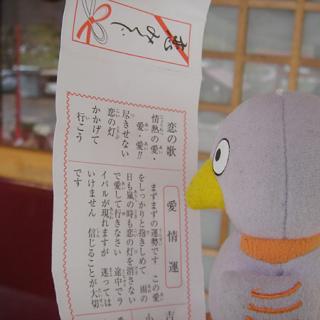 恋みくじ
恋の歌
情熱の愛・
愛・愛!!
尽きせない
恋の灯
かかげて
行こう
愛情運
まずまずの運勢です この愛
をしっかりと抱きしめて 雨の
日も嵐の時も恋の灯を消さない
で愛して行きなさい 途中でラ
イバルが現れますが 迷っては
いけません 信じることが大切
です
吉
小